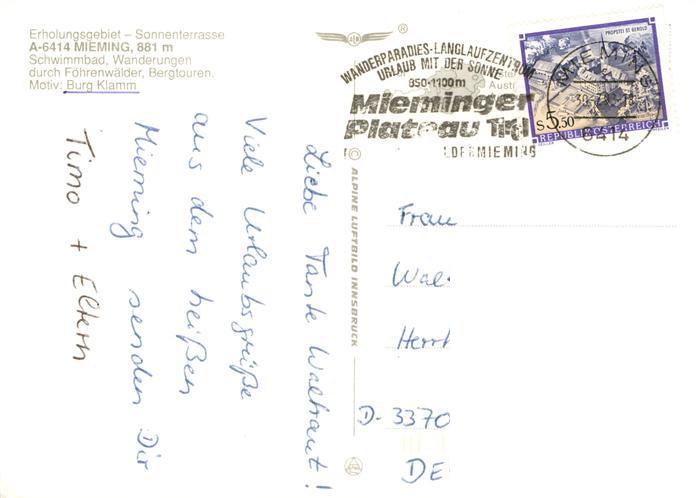 Erholungsgebiet – Sonnenterrasse
A-6414 MIEMING, 881 m
Schwimmbad, Wanderungen
durch Föhrenwälder, Bergtouren.
Motiv: Burg Klamm
Liebe Tante Waltraut!
Viele Urlaubsgrüße
aus dem heißen
Mieming senden Dir
Timo + Eltern
WANDERPARADIES-LANGLAUFZENTRUM
URLAUB MIT DER SONNE
850-1100m
Mieminger
Plateau Tirol
PROPSTEI ST. GEROLD
S 5.50
REPUBLIK ÖSTERREICH
6414
© ALPINE LUFTBILD INNSBRUCK
Frau
Wal
Herrl
D-3370
DE